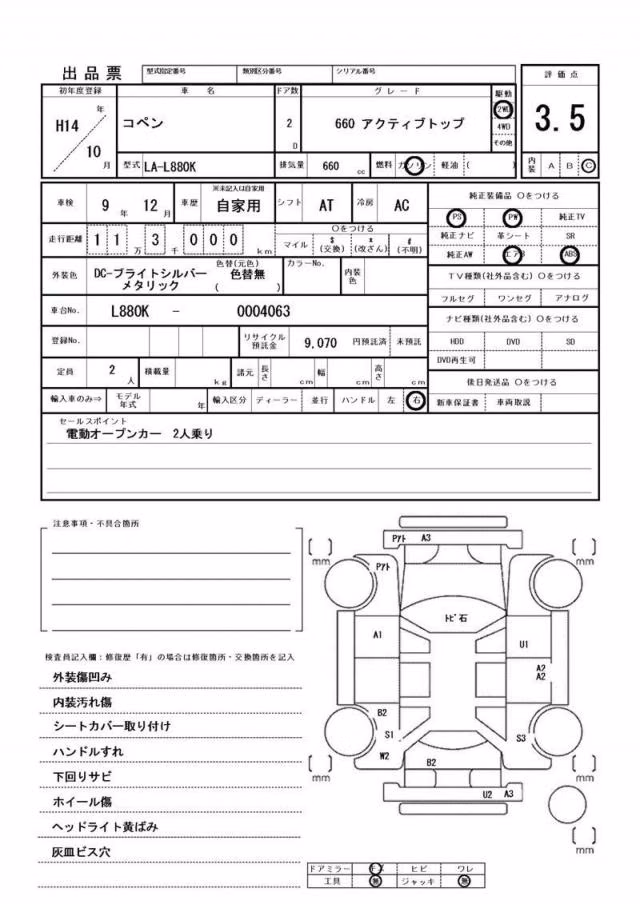 出品票 型式指定番号 類別区分番号 シリアル番号 評価点
初年度登録 車名 ドア数 グレード 駆動 3.5
H14 年 コペン 2 D 660 アクティブトップ 2WD
10 月 4WD
その他
型式 LA-L880K 排気量 660 cc 燃料 ガソリン 軽油 ( ) 内装 A B C
車検 9 年 12 月 車歴 ※未記入は自家用 自家用 シフト AT 冷房 AC 純正装備品 〇をつける
PS PW 純正TV
走行距離 1 1 万 3 千 0 0 0 km 〇をつける
マイル $ (交換) x (改ざん) # (不明) 純正ナビ 革シート SR
純正AW エアB ABS
外装色 DC-ブライトシルバーメタリック 色替(元色) 色替無 ( ) カラーNo. 内装色 TV種類(社外品含む) 〇をつける
フルセグ ワンセグ アナログ
車台No. L880K - 0004063 ナビ種類(社外品含む) 〇をつける
登録No. リサイクル預託金 9,070 円預託済 未預託 HDD DVD SD
DVD再生可
定員 2 人 積載量 kg 諸元 長さ cm 幅 cm 高さ cm 後日発送品 〇をつける
輸入車のみ⇒ モデル年式 年 輸入区分 ディーラー 並行 ハンドル 左 右 新車保証書 車両取説
セールスポイント
電動オープンカー 2人乗り
注意事項・不具合箇所
検査員記入欄：修復歴「有」の場合は修復箇所・交換箇所を記入
外装傷凹み
内装汚れ傷
シートカバー取り付け
ハンドルすれ
下回りサビ
ホイール傷
ヘッドライト黄ばみ
灰皿ビス穴
Pｱﾄ A3
[ ] mm Pｱﾄ [ ] mm
ﾄﾋﾞ石
A1 U1
A2
A2
B2
S1 S3
W2 B2
[ ] mm [ ] mm
U2 A3
[ ] mm
ドアミラー ヒビ ワレ
工具 無 ジャッキ 無